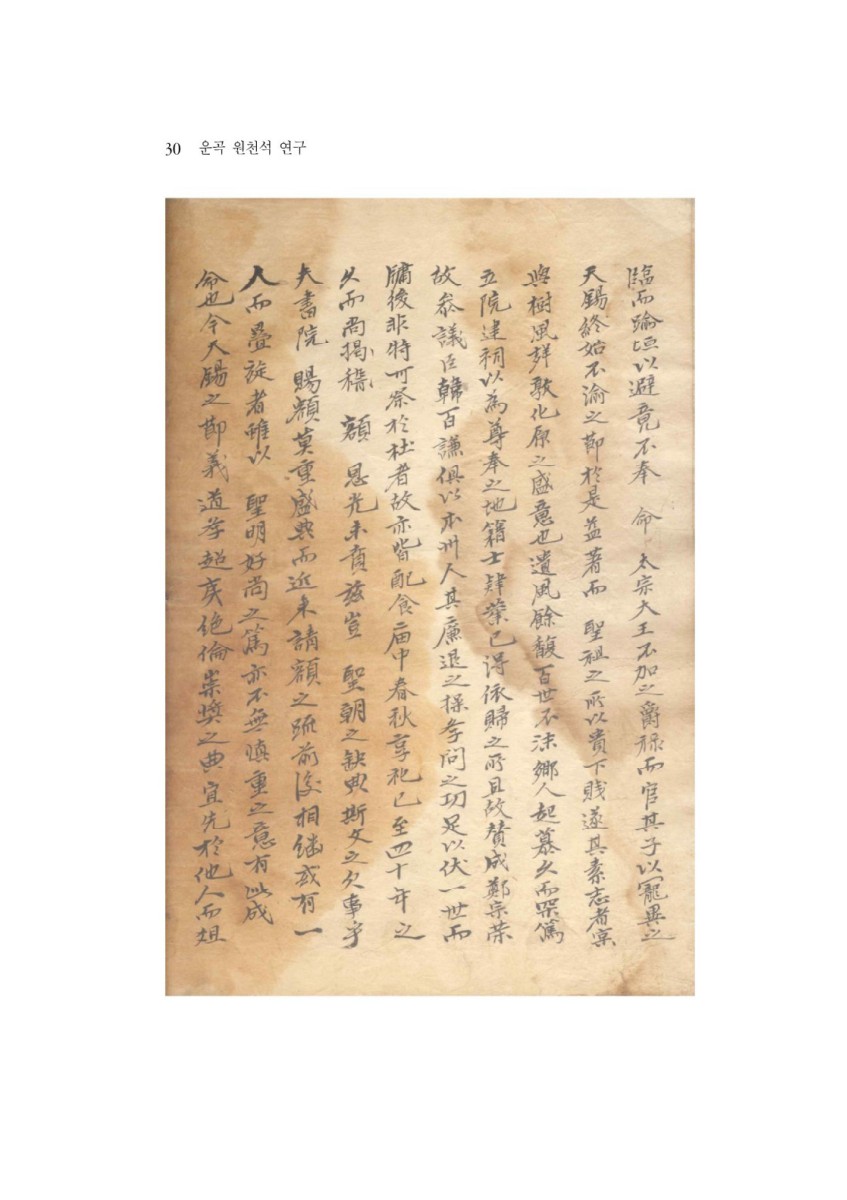 30 운곡 원천석 연구
臨而踰垣以避竟不奉 命 太宗大王不加之爵祿而官其子以寵異之
天錫終始不渝之節於是益著而 聖祖之所以貴下賤遂其素志者寔
與樹風聲敦化原之盛意也遺風餘馥百世不沫鄉人起慕久而罙篤
五院建祠以為尊奉之地籍士肄業已得依歸之所且故贊成鄭宗荣
故叅議臣韓百謙俱以本州人其廉退之操孝問之功足以伏一世而
牗後非特可祭於社者故亦皆配食庙中春秋享祀已至四十年之
久而尚揭 額 恩光未賁玆豈 聖朝之缺典斯文之欠事乎
夫書院 賜額莫重盛典而近来請額之疏前後相継或有一
人而疊旋者雖以 聖明好尚之篤亦不無愼重之意有此成
命也今天錫之節義道孝超 絶倫崇奬之典宜先於他人而姐